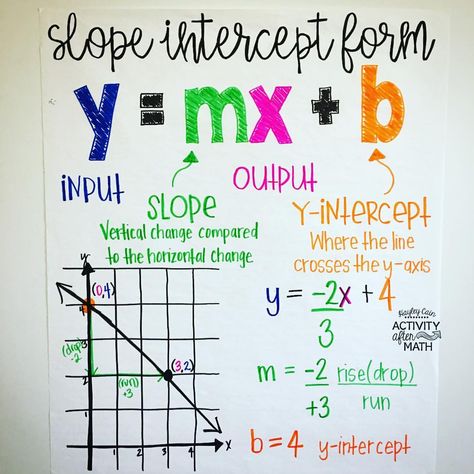 slope intercept form
y = mx + b
INPUT
OUTPUT
SLOPE
Vertical change compared
to the horizontal change
Y-INTERCEPT
Where the line
crosses the y-axis
y = -2x + 4
3
Kayley Cain
ACTIVITY
after
MATH
m = -2 rise(drop)
+3 run
b = 4 y-intercept
y
(0,4)
4
3
(drop)
-2
2
(run)
+3
(3,2)
1
1 2 3 4 x